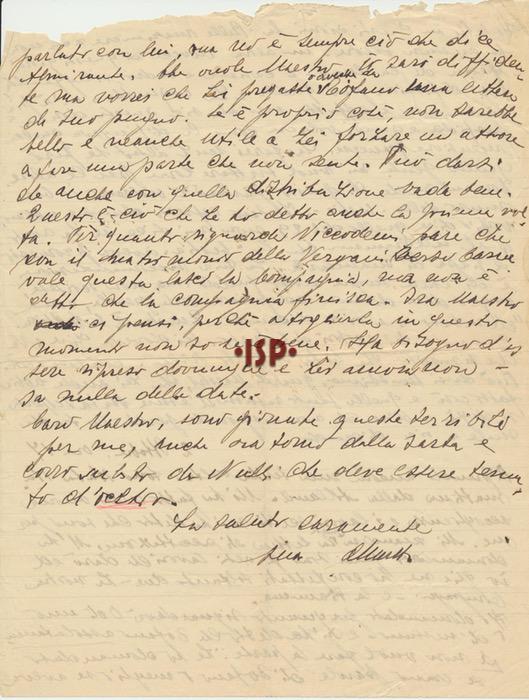 parlato con lui, ma no è sempre ciò che dice
Almirante. Che vuole Maestro io sarò diffiden-
te ma vorrei che Lei pregasse Cofano
di suo pugno. Se è proprio così, non sarebbe
bello e neanche utile a Lei forzare un attore
a fare una parte che non sente. Può darsi
che anche con quella distribuzione vada bene.
Questo è ciò che Le ho detto anche la prima vol-
ta. Per quanto riguarda Niccodemi pare che
con il matrimonio della Vergani verso carne-
vale questa lasci la Compagnia, ma non è
detto che la compagnia finisca. Ora Maestro
ci pensi, perchè a toglierla in questo
momento non so se è bene. Ha bisogno d'es
sere ripreso e Lei ancora non
sa nulla delle date.
Caro Maestro, sono giornate queste terribili
per me, anche ora torno dalla sarta e
corro subito da Nulli che deve essere
to d'
La saluto caramente
sua Marta
ISP